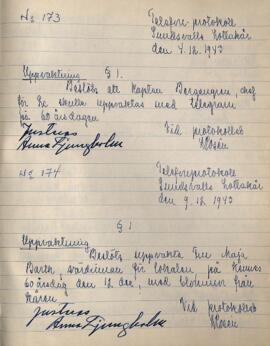 No 173
Telefon-protokoll
Sundsvalls Lottakår
den 4.12.1943
Uppvaktning § 1.
Beslöts att Kapten Berggren, chef
för Lv skulle uppvaktas med telegram
på 60 årsdagen
Justeras
Vid protokollet
Anna Ljungholm
No 174
Telefonprotokoll
Sundsvalls Lottakår
den 9.12.1943
§ 1
Uppvaktning
Beslöts uppvakta Fru Maja
Barth, värdinnan för lokalen på hennes
60 årsdag den 12 dec, med blommor från
kåren.
Vid protokollet
Justeras
Anna Ljungholm